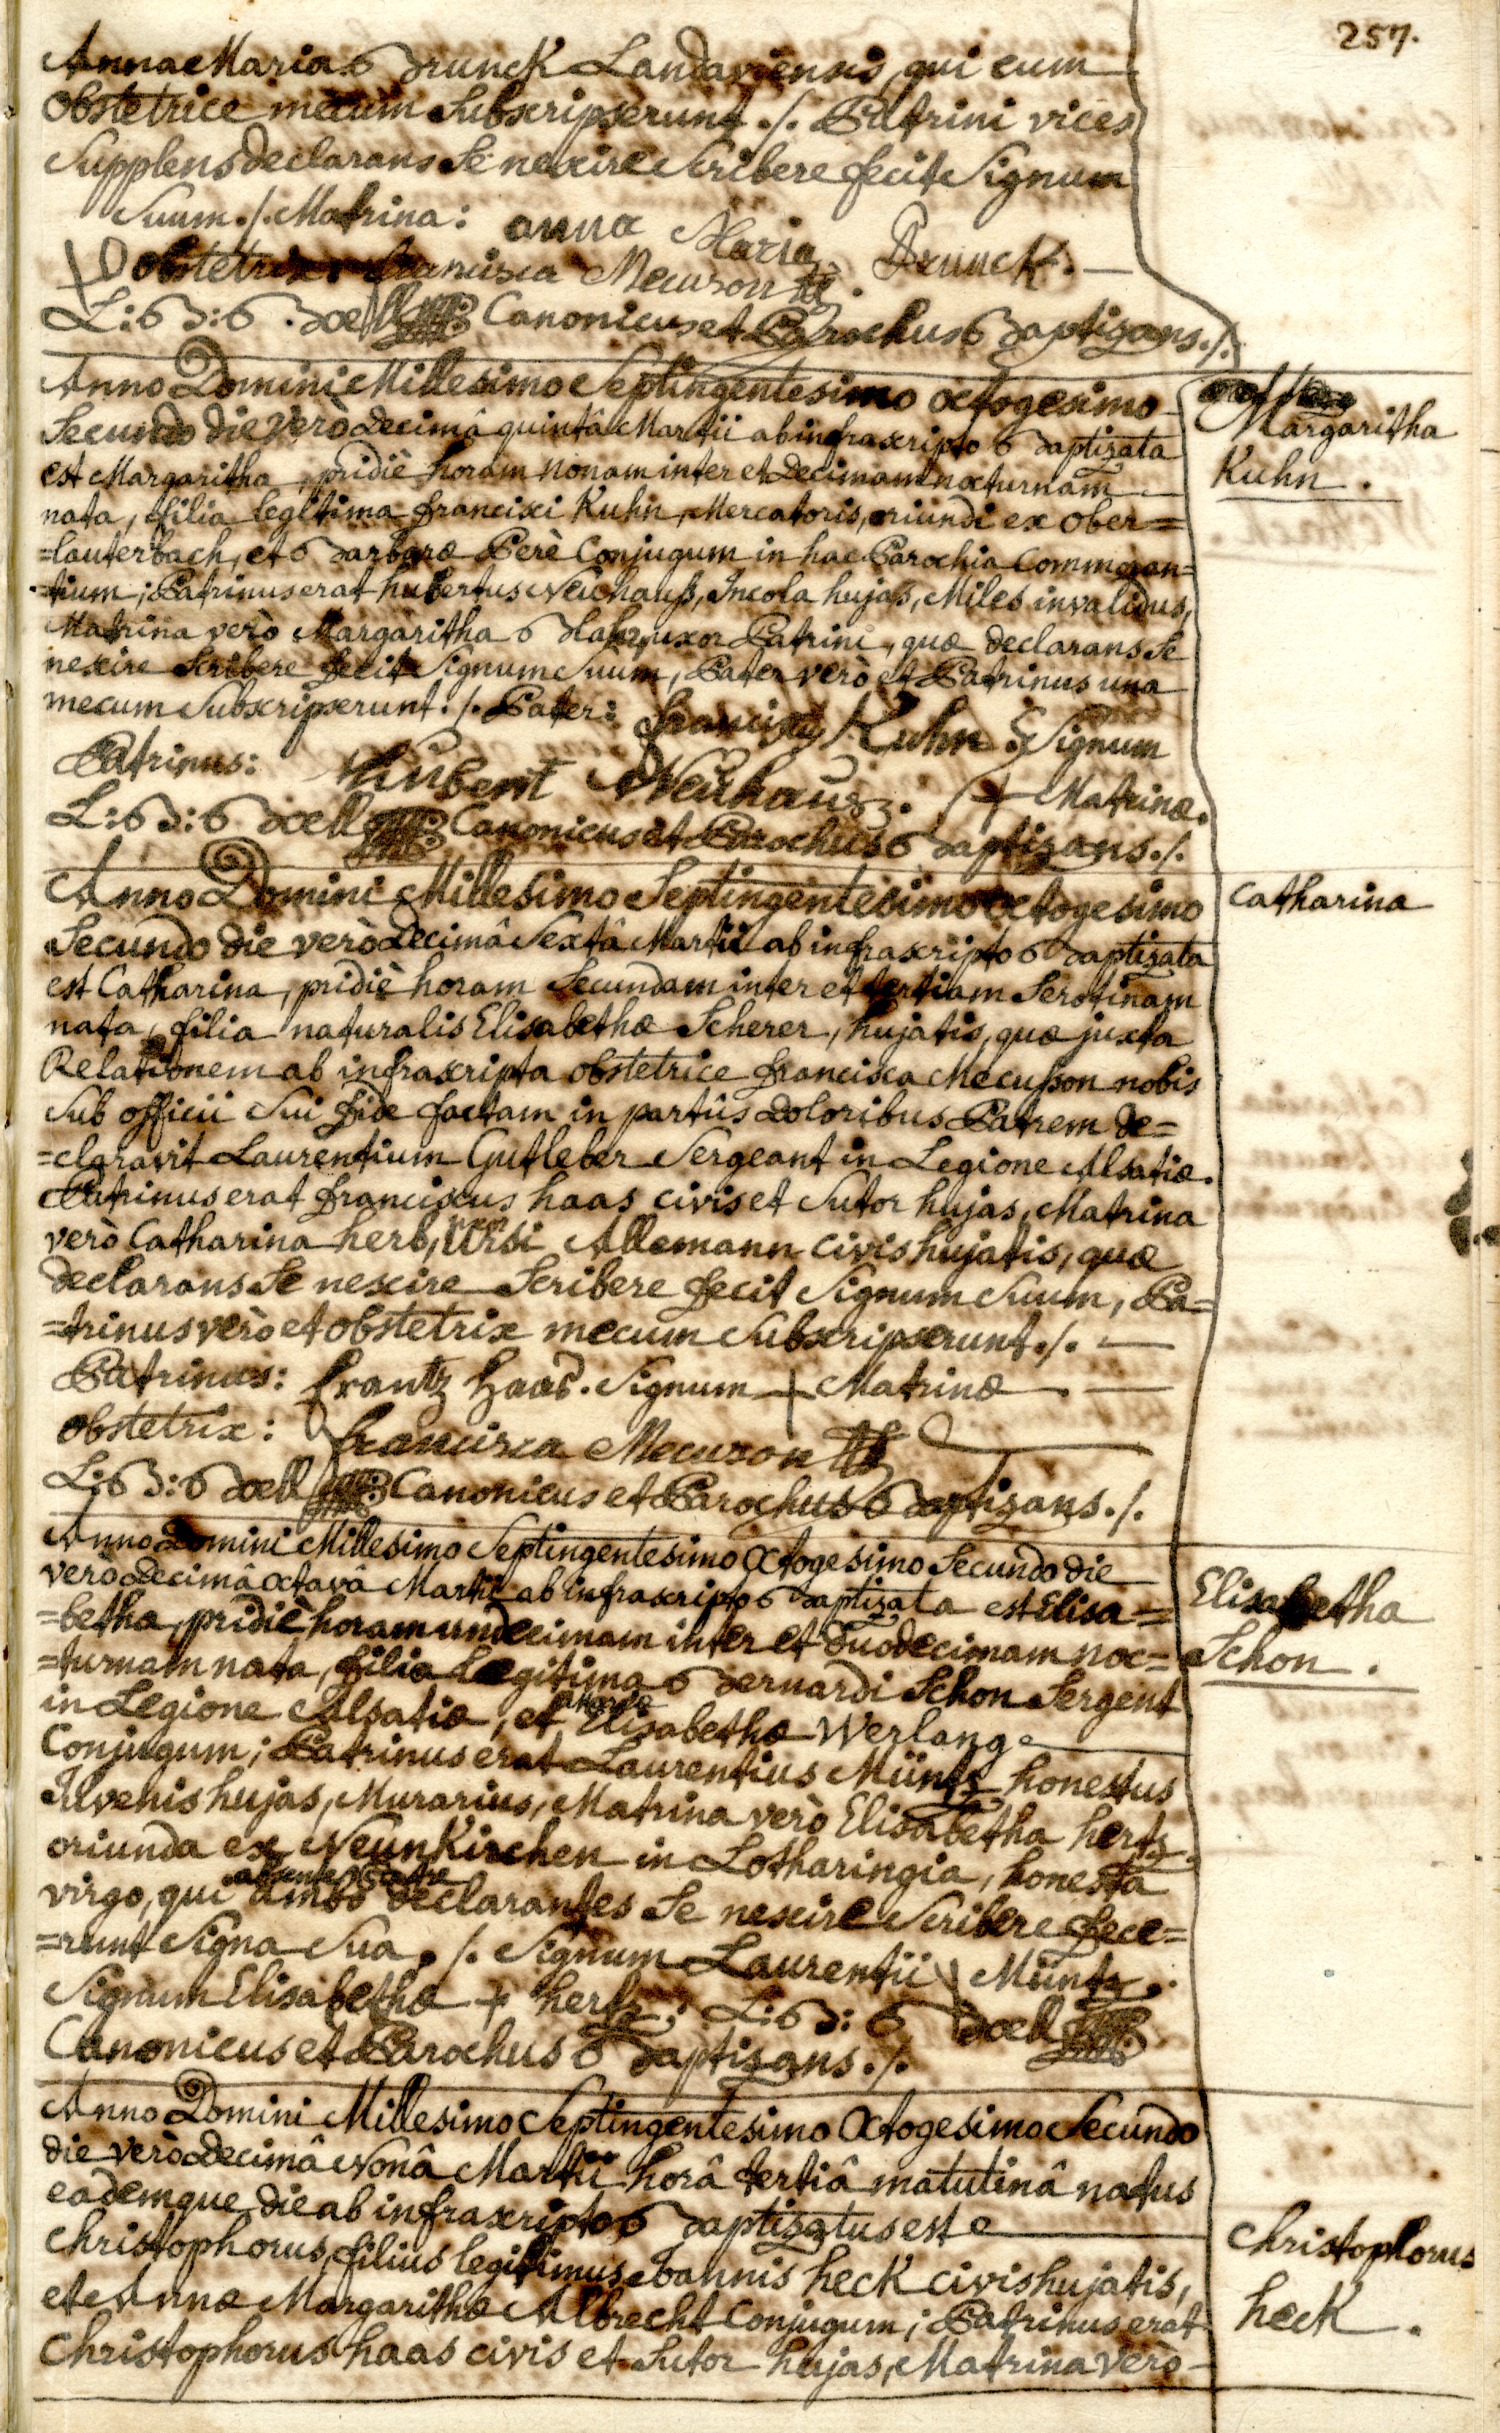 257.
Anna Maria Brunck Landaviensis, qui cum
obstetrice mecum Subscripserunt ./. Patrini vices
Supplens declarans Se nescire Scribere fecit Signum
Suum ./. Matrina: anna Maria Brunck.
obstetrix francisca Mecuson
L: B: Boell Canonicus et Parochus Baptizans ./.
Anno Domini Millesimo Septingentesimo octogesimo
Secundo die verò Decimâ quintâ Martii ab infrascripto Baptizata
est Margaritha, pridiè horam nonam inter et Decimam nocturnam
nata, filia legitima francisci Kuhn, Mercatoris, oriundi ex ober=
=lauterbach, et Barbaræ Perè Conjugum in hac Parochia Commoran=
=tium; Patrinus erat hubertus Neuhauß, Incola hujas, Miles invalidus,
Matrina verò Margaritha uxor Patrini, quæ declarans Se
nescire Scribere fecit Signum Suum, Pater verò et Patrinus una
mecum Subscripserunt ./. Pater: Kuhn. Signum
Patrinus: Hubert Neuhaus. + Matrinæ.
L: B: Boell Canonicus et Parochus Baptizans ./.
Margaritha
Kuhn.
Anno Domini Millesimo Septingentesimo octogesimo
Secundo die verò Decimâ Sextâ Martii ab infrascripto Baptizata
est Catharina, pridiè horam Secundam inter et tertiam Serotinam
nata, filia naturalis Elisabethæ Scherer, hujatis, quæ juxta
Relationem ab infrascripta obstetrice francisca Mecusson nobis
Sub officii Sui fide factam in partûs Doloribus Patrem de=
=claravit Laurentium Gutleber Sergeant in Legione Alsatiæ.
Patrinus erat franciscus haas civis et Sutor hujas, Matrina
verò Catharina herb, uxor Ursi Allemann civis hujatis, quæ
declarans Se nescire Scribere fecit Signum Suum, Pa=
=trinus verò et obstetrix mecum Subscripserunt ./.
Patrinus: frantz haas. Signum + Matrinæ.
obstetrix: francisca Mecuson
L: B: Boell Canonicus et Parochus Baptizans ./.
Catharina
Anno Domini Millesimo Septingentesimo Octogesimo Secundo die
verò Decimâ octavâ Martii ab infrascripto Baptizata est Elisa=
=betha, pridiè horam undecimam inter et duodecimam noc=
=turnam nata, filia Legitima Bernardi Schon Sergent
in Legione Alsatiæ, et Mariæ Elisabethæ Werlang
Conjugum; Patrinus erat Laurentius Müntz honestus
Juvenis hujas, Murarius, Matrina verò Elisabetha hertz
oriunda ex Neunkirchen in Lotharingia, honesta
virgo, qui absente Patre ambo declarantes Se nescire Scribere fece=
=runt Signa Sua ./. Signum Laurentii Müntz.
Signum Elisabethæ + hertz; L: B: Boell
Canonicus et Parochus Baptizans ./.
Elisabetha
Schon.
Anno Domini Millesimo Septingentesimo Octogesimo Secundo
die verò Decimâ Nonâ Martii horâ tertiâ matutinâ natus
eademque die ab infrascripto Baptizatus est
Christophorus, filius legitimus Joannis heck civis hujatis,
et Annæ Margarithæ Albrecht Conjugum; Patrinus erat
Christophorus haas civis et Sutor hujas, Matrina verò
Christophorus
heck.